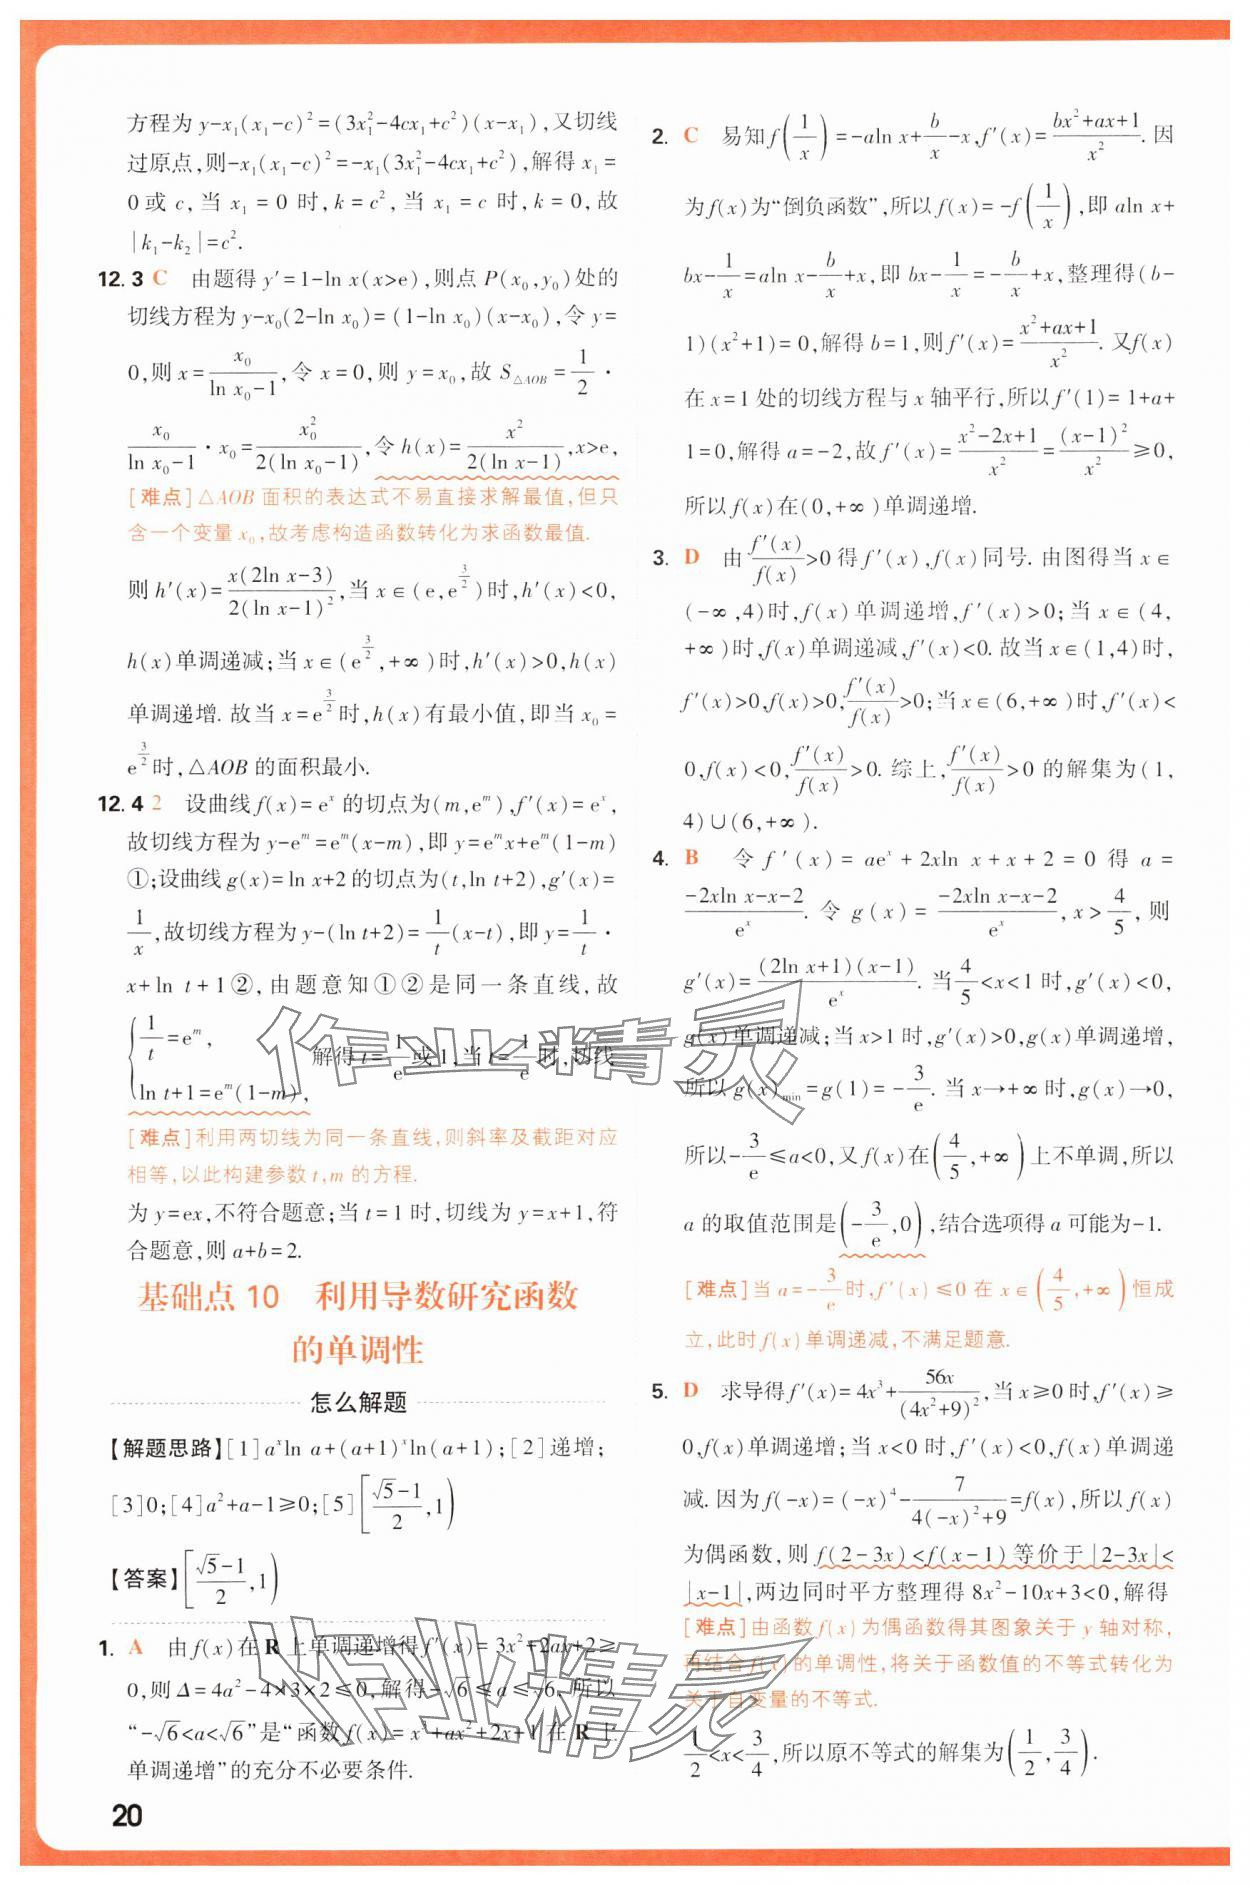 方程为 y-x₁(x₁-c)²=(3x₁²-4cx₁+c²)(x-x₁),又切线
过原点,则-x₁(x₁-c)²=-x₁(3x₁²-4cx₁+c²),解得 x₁=
0或 c,当 x₁=0 时,k=c²,当 x₁=c 时,k=0,故
|k₁-k₂|=c².
12.3 C 由题得 y′=1-ln x(x>e),则点 P(x₀,y₀)处的
切线方程为 y-x₀(2-ln x₀)=(1-ln x₀)(x-x₀),令 y=
0,则 x=x₀/(ln x₀-1),令 x=0,则 y=x₀,故 S△AOB=1/2·
x₀/(ln x₀-1)·x₀=x₀²/(2(ln x₀-1)),令 h(x)=x²/(2(ln x-1)),x>e,
[难点]△AOB 面积的表达式不易直接求解最值,但只
含一个变量 x₀,故考虑构造函数转化为求函数最值.
则 h′(x)=x(2ln x-3)/(2(ln x-1)²),当 x∈(e,e^(3/2))时,h′(x)<0,
h(x)单调递减;当 x∈(e^(3/2),+∞)时,h′(x)>0,h(x)
单调递增. 故当 x=e^(3/2)时,h(x)有最小值,即当 x₀=
e^(3/2)时,△AOB 的面积最小.
12.4 2 设曲线 f(x)=eˣ 的切点为(m,eᵐ),f′(x)=eˣ,
故切线方程为 y-eᵐ=eᵐ(x-m),即 y=eᵐx+eᵐ(1-m)
①;设曲线 g(x)=ln x+2 的切点为(t,ln t+2),g′(x)=
1/x,故切线方程为 y-(ln t+2)=1/t(x-t),即 y=1/t·
x+ln t+1②,由题意知①②是同一条直线,故
{1/t=eᵐ, ln t+1=eᵐ(1-m), 解得 t=1/e或 1,当 t=1/e时,切线
[难点]利用两切线为同一条直线,则斜率及截距对应
相等,以此构建参数 t,m 的方程.
为 y=ex,不符合题意;当 t=1 时,切线为 y=x+1,符
合题意,则 a+b=2.
基础点 10 利用导数研究函数
的单调性
怎么解题
【解题思路】[1]aˣln a+(a+1)ˣln(a+1);[2]递增;
[3]0;[4]a²+a-1≥0;[5][(√5-1)/2,1)
【答案】[(√5-1)/2,1)
1. A 由 f(x)在 R 上单调递增得 f′(x)=3x²+2ax+2≥
0,则 Δ=4a²-4×3×2≤0,解得-√6≤a≤√6. 所以
“-√6<a<√6”是“函数 f(x)=x³+ax²+2x+1 在 R 上
单调递增”的充分不必要条件.
20
2. C 易知 f(1/x)=-aln x+b/x-x,f′(x)=(bx²+ax+1)/x². 因
为 f(x)为“倒负函数”,所以 f(x)=-f(1/x),即 aln x+
bx-1/x=aln x-b/x+x,即 bx-1/x=-b/x+x,整理得(b-
1)(x²+1)=0,解得 b=1,则 f′(x)=(x²+ax+1)/x². 又 f(x)
在 x=1 处的切线方程与 x 轴平行,所以 f′(1)=1+a+
1=0,解得 a=-2,故 f′(x)=(x²-2x+1)/x²=(x-1)²/x²≥0,
所以 f(x)在(0,+∞)单调递增.
3. D 由f′(x)/f(x)>0 得 f′(x),f(x)同号. 由图得当 x∈
(-∞,4)时,f(x)单调递增,f′(x)>0;当 x∈(4,
+∞)时,f(x)单调递减,f′(x)<0. 故当 x∈(1,4)时,
f′(x)>0,f(x)>0,f′(x)/f(x)>0;当 x∈(6,+∞)时,f′(x)<
0,f(x)<0,f′(x)/f(x)>0. 综上,f′(x)/f(x)>0 的解集为(1,
4)∪(6,+∞).
4. B 令 f′(x)=aeˣ+2xln x+x+2=0 得 a=
(-2xln x-x-2)/eˣ. 令 g(x)=(-2xln x-x-2)/eˣ,x>4/5,则
g′(x)=(2ln x+1)(x-1)/eˣ. 当4/5<x<1 时,g′(x)<0,
g(x)单调递减;当 x>1 时,g′(x)>0,g(x)单调递增,
所以 g(x)min=g(1)=-3/e. 当 x→+∞时,g(x)→0,
所以-3/e≤a<0,又 f(x)在(4/5,+∞)上不单调,所以
a 的取值范围是(-3/e,0),结合选项得 a 可能为-1.
[难点]当 a=-3/e时,f′(x)≤0 在 x∈(4/5,+∞)恒成
立,此时 f(x)单调递减,不满足题意.
5. D 求导得 f′(x)=4x³+56x/(4x²+9)²,当 x≥0 时,f′(x)≥
0,f(x)单调递增;当 x<0 时,f′(x)<0,f(x)单调递
减. 因为 f(-x)=(-x)⁴-7/(4(-x)²+9)=f(x),所以 f(x)
为偶函数,则 f(2-3x)<f(x-1)等价于|2-3x|<
|x-1|,两边同时平方整理得 8x²-10x+3<0,解得
[难点]由函数 f(x)为偶函数得其图象关于 y 轴对称,
再结合 f(x)的单调性,将关于函数值的不等式转化为
关于自变量的不等式.
1/2<x<3/4,所以原不等式的解集为(1/2,3/4).
作业精灵
作业精灵